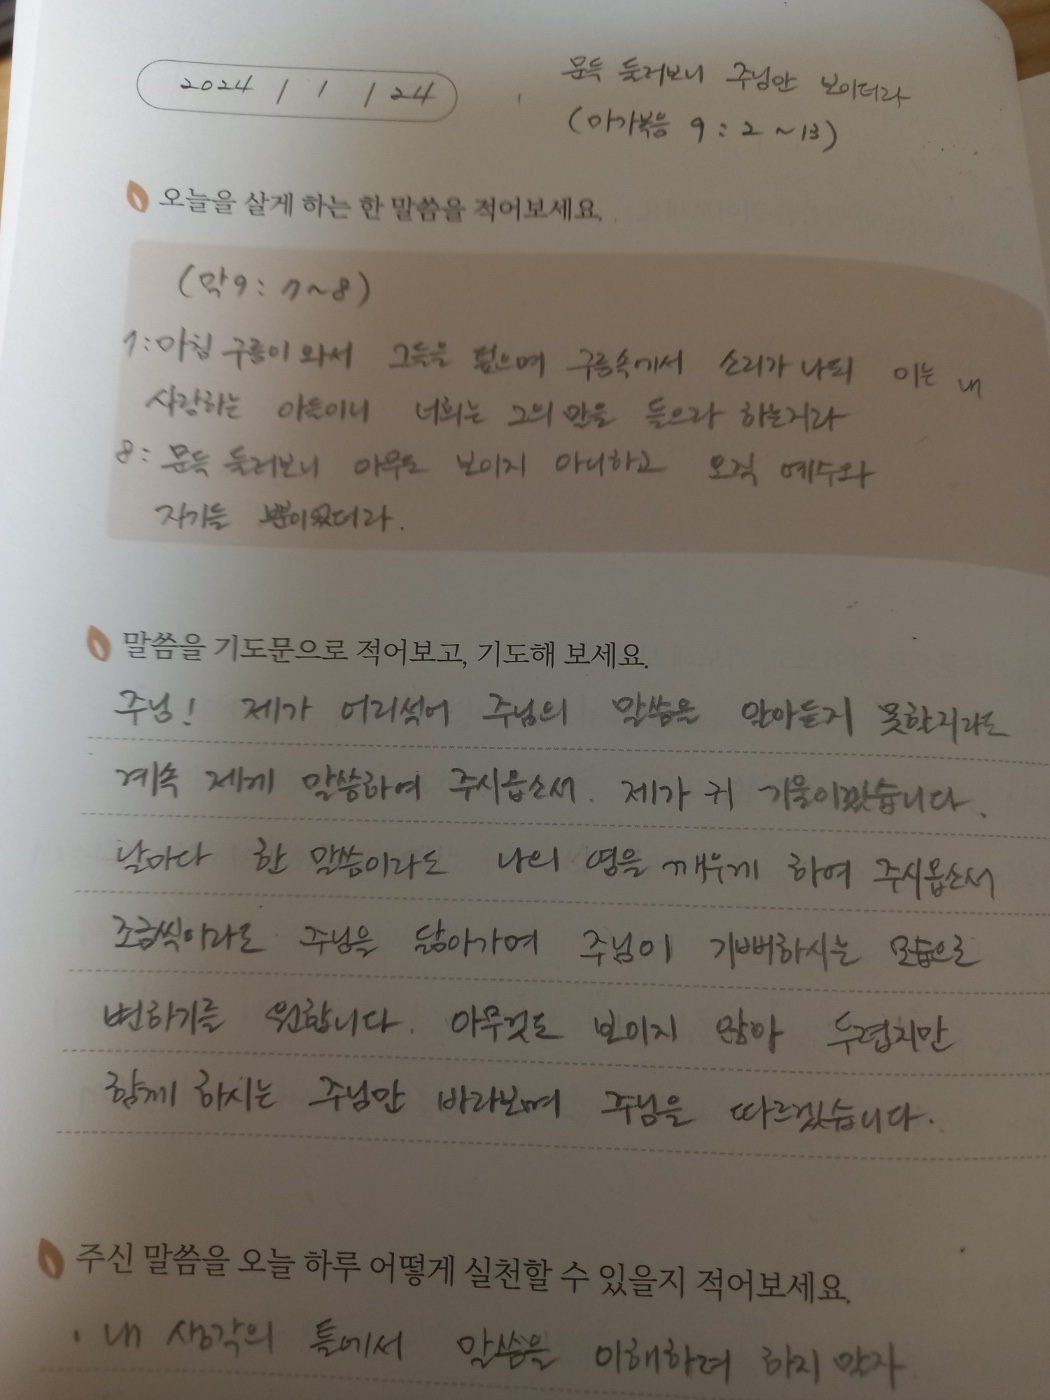 2024 / 1 / 24
문득 둘러보니 주님만 보이더라
(마가복음 9 : 2 ~ 13)
오늘을 살게 하는 한 말씀을 적어보세요.
(막9 : 7~8)
7: 마침 구름이 와서 그들을 덮으며 구름속에서 소리가 나되 이는 내
사랑하는 아들이니 너희는 그의 말을 들으라 하는지라
8: 문득 둘러보니 아무도 보이지 아니하고 오직 예수와
자기들 뿐이었더라.
말씀을 기도문으로 적어보고, 기도해 보세요.
주님! 제가 어리석어 주님의 말씀을 알아듣지 못할지라도
계속 제게 말씀하여 주시옵소서. 제가 귀 기울이겠습니다.
날마다 한 말씀이라도 나의 영을 깨우게 하여 주시옵소서
조금씩이라도 주님을 닮아가며 주님이 기뻐하시는 모습으로
변하기를 원합니다. 아무것도 보이지 않아 두렵지만
함께 하시는 주님만 바라보며 주님을 따르겠습니다.
주신 말씀을 오늘 하루 어떻게 실천할 수 있을지 적어보세요.
· 내 생각의 틀에서 말씀을 이해하려 하지 말자